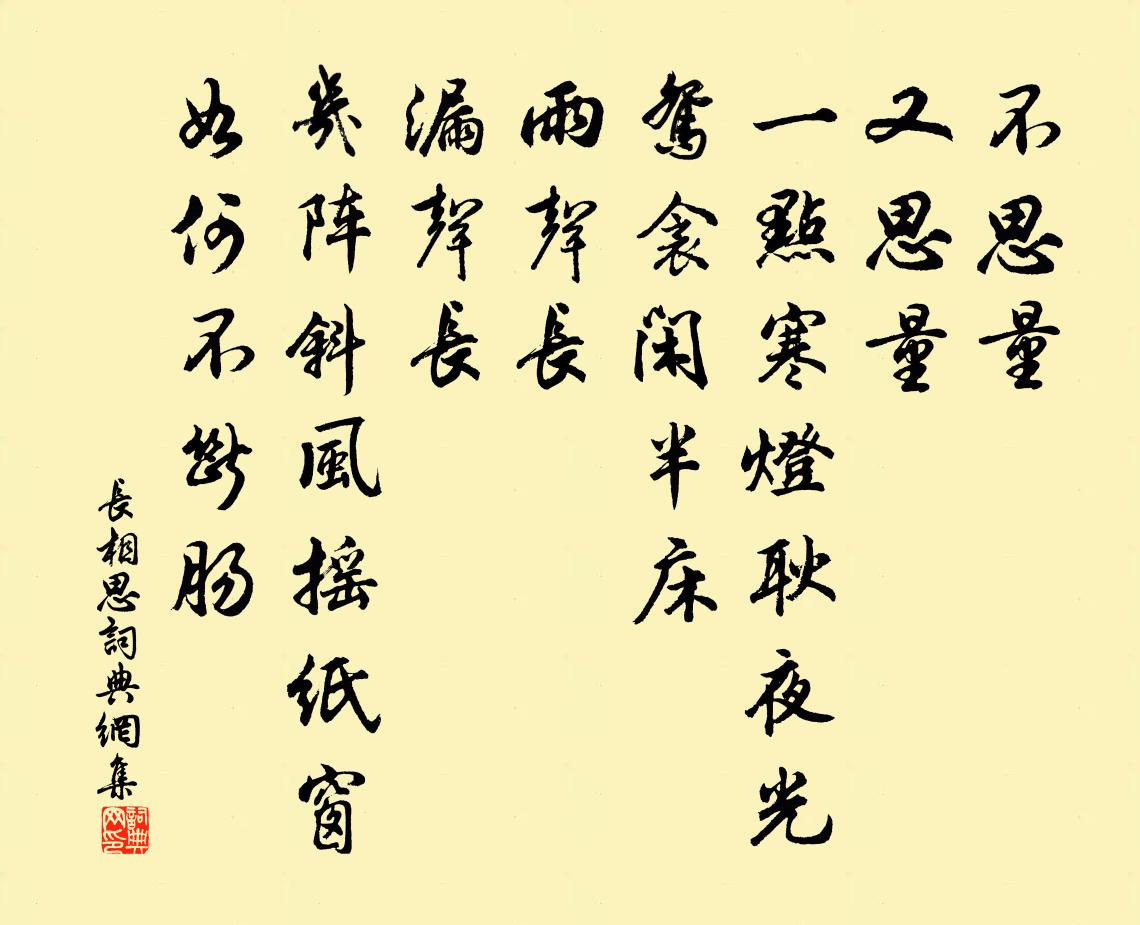 不思量
又思量
一點寒燈耿夜光
鴛衾閑半床
雨聲長
漏聲長
幾阵斜風摇纸窗
如何不斷肠
長相思詞典網集
詞典网印